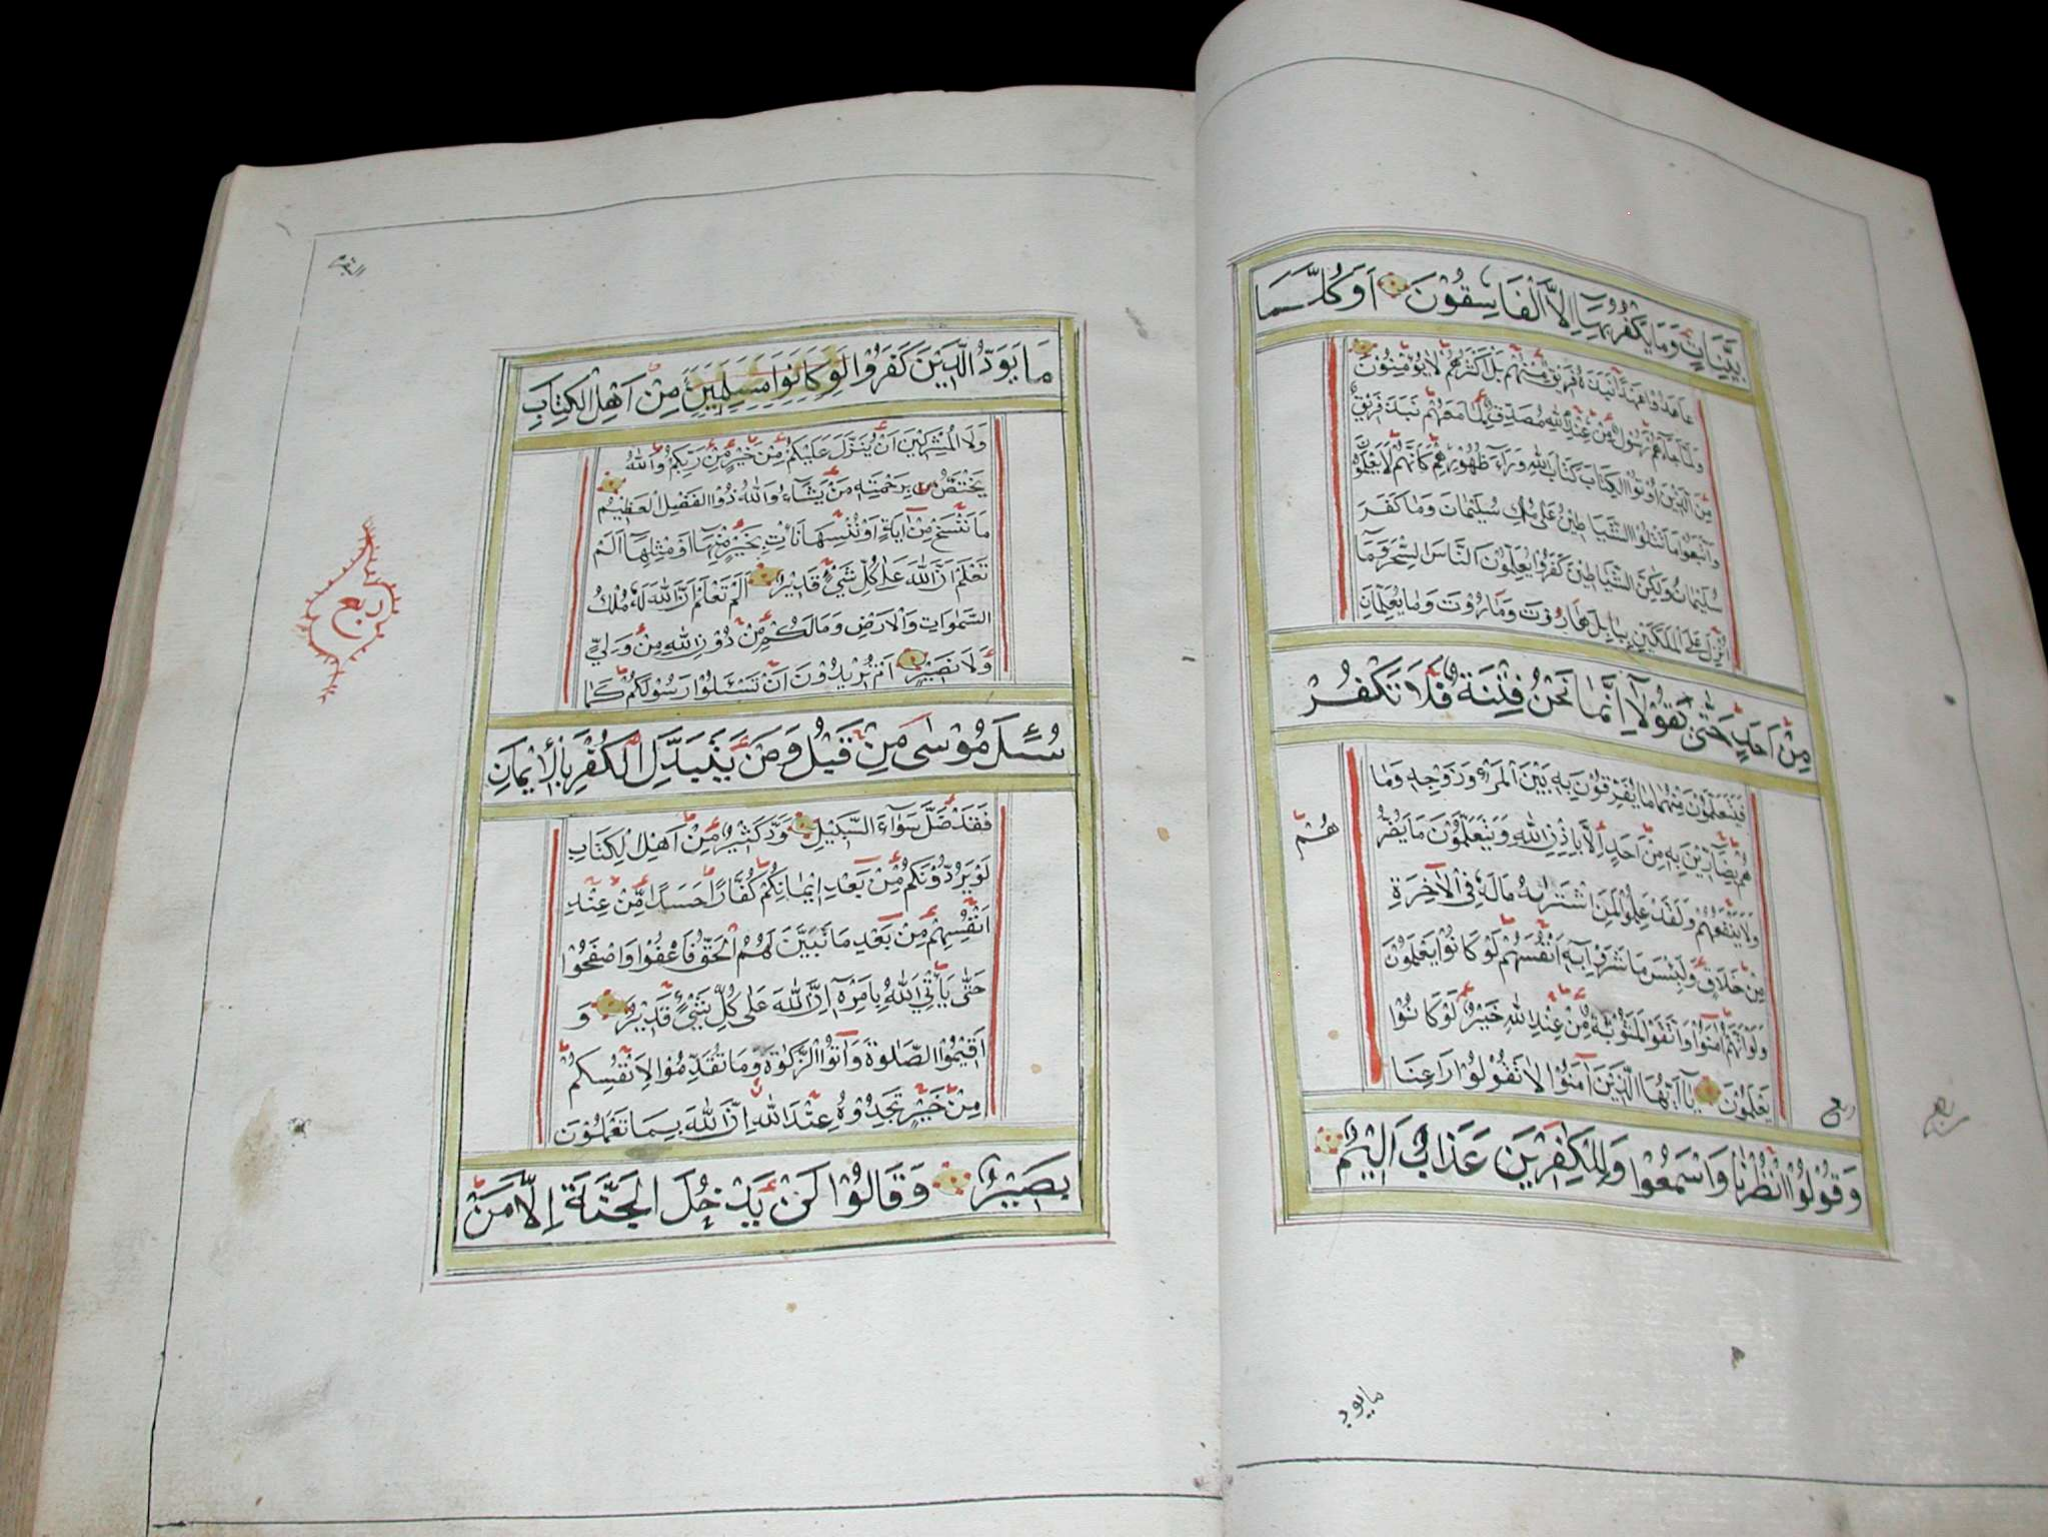 بَيِّنَاتٍ وَمَا يَكْفُرُ بِهَا إِلَّا الْفَاسِقُوْنَ اَوَكُلَّمَا
عَاهَدُوْا عَهْدًا نَبَذَهُ فَرِيْقٌ مِنْهُمْ بَلْ اَكْثَرُهُمْ لَا يُؤْمِنُوْنَ
وَلَمَّا جَاءَهُمْ رَسُوْلٌ مِنْ عِنْدِ اللّٰهِ مُصَدِّقٌ لِمَا مَعَهُمْ نَبَذَ فَرِيْقٌ
مِنَ الَّذِيْنَ اُوْتُوا الْكِتَابَ كِتَابَ اللّٰهِ وَرَاءَ ظُهُوْرِهِمْ كَاَنَّهُمْ لَا يَعْلَمُوْنَ
وَاتَّبَعُوْا مَا تَتْلُوا الشَّيَاطِيْنُ عَلٰى مُلْكِ سُلَيْمَانَ وَمَا كَفَرَ
سُلَيْمَانُ وَلٰكِنَّ الشَّيَاطِيْنَ كَفَرُوْا يُعَلِّمُوْنَ النَّاسَ السِّحْرَ وَمَا
اُنْزِلَ عَلَى الْمَلَكَيْنِ بِبَابِلَ هَارُوْتَ وَمَارُوْتَ وَمَا يُعَلِّمَانِ
مِنْ اَحَدٍ حَتّٰى يَقُوْلَا اِنَّمَا نَحْنُ فِتْنَةٌ فَلَا تَكْفُرْ
فَيَتَعَلَّمُوْنَ مِنْهُمَا مَا يُفَرِّقُوْنَ بِهِ بَيْنَ الْمَرْءِ وَزَوْجِهِ وَمَا
هُمْ بِضَارِّيْنَ بِهِ مِنْ اَحَدٍ اِلَّا بِاِذْنِ اللّٰهِ وَيَتَعَلَّمُوْنَ مَا يَضُرُّ
هُمْ
وَلَا يَنْفَعُهُمْ وَلَقَدْ عَلِمُوْا لَمَنِ اشْتَرٰىهُ مَا لَهُ فِي الْاٰخِرَةِ
مِنْ خَلَاقٍ وَلَبِئْسَ مَا شَرَوْا بِهِ اَنْفُسَهُمْ لَوْ كَانُوْا يَعْلَمُوْنَ
وَلَوْ اَنَّهُمْ اٰمَنُوْا وَاتَّقَوْا لَمَثُوْبَةٌ مِنْ عِنْدِ اللّٰهِ خَيْرٌ لَوْ كَانُوْا
يَعْلَمُوْنَ يَا اَيُّهَا الَّذِيْنَ اٰمَنُوْا لَا تَقُوْلُوْا رَاعِنَا
ربع
وَقُوْلُوا انْظُرْنَا وَاسْمَعُوْا وَلِلْكٰفِرِيْنَ عَذَابٌ اَلِيْمٌ
ما يود
مَا يَوَدُّ الَّذِيْنَ كَفَرُوْا لَوْ كَانُوْا مُسْلِمِيْنَ مِنْ اَهْلِ الْكِتَابِ
وَلَا الْمُشْرِكِيْنَ اَنْ يُنَزَّلَ عَلَيْكُمْ مِنْ خَيْرٍ مِنْ رَبِّكُمْ وَاللّٰهُ
يَخْتَصُّ بِرَحْمَتِهِ مَنْ يَشَاءُ وَاللّٰهُ ذُو الْفَضْلِ الْعَظِيْمِ
مَا نَنْسَخْ مِنْ اٰيَةٍ اَوْ نُنْسِهَا نَأْتِ بِخَيْرٍ مِنْهَا اَوْ مِثْلِهَا اَلَمْ
تَعْلَمْ اَنَّ اللّٰهَ عَلٰى كُلِّ شَيْءٍ قَدِيْرٌ اَلَمْ تَعْلَمْ اَنَّ اللّٰهَ لَهُ مُلْكُ
السَّمٰوَاتِ وَالْاَرْضِ وَمَا لَكُمْ مِنْ دُوْنِ اللّٰهِ مِنْ وَلِيٍّ
وَلَا نَصِيْرٍ اَمْ تُرِيْدُوْنَ اَنْ تَسْئَلُوْا رَسُوْلَكُمْ كَمَا
سُئِلَ مُوْسٰى مِنْ قَبْلُ وَمَنْ يَتَبَدَّلِ الْكُفْرَ بِالْاِيْمَانِ
فَقَدْ ضَلَّ سَوَاءَ السَّبِيْلِ وَدَّ كَثِيْرٌ مِنْ اَهْلِ الْكِتَابِ
لَوْ يَرُدُّوْنَكُمْ مِنْ بَعْدِ اِيْمَانِكُمْ كُفَّارًا حَسَدًا مِنْ عِنْدِ
اَنْفُسِهِمْ مِنْ بَعْدِ مَا تَبَيَّنَ لَهُمُ الْحَقُّ فَاعْفُوْا وَاصْفَحُوْا
حَتّٰى يَأْتِيَ اللّٰهُ بِاَمْرِهِ اِنَّ اللّٰهَ عَلٰى كُلِّ شَيْءٍ قَدِيْرٌ وَ
اَقِيْمُوا الصَّلٰوةَ وَاٰتُوا الزَّكٰوةَ وَمَا تُقَدِّمُوْا لِاَنْفُسِكُمْ
مِنْ خَيْرٍ تَجِدُوْهُ عِنْدَ اللّٰهِ اِنَّ اللّٰهَ بِمَا تَعْمَلُوْنَ
بَصِيْرٌ وَقَالُوْا لَنْ يَدْخُلَ الْجَنَّةَ اِلَّا مَنْ
ربع